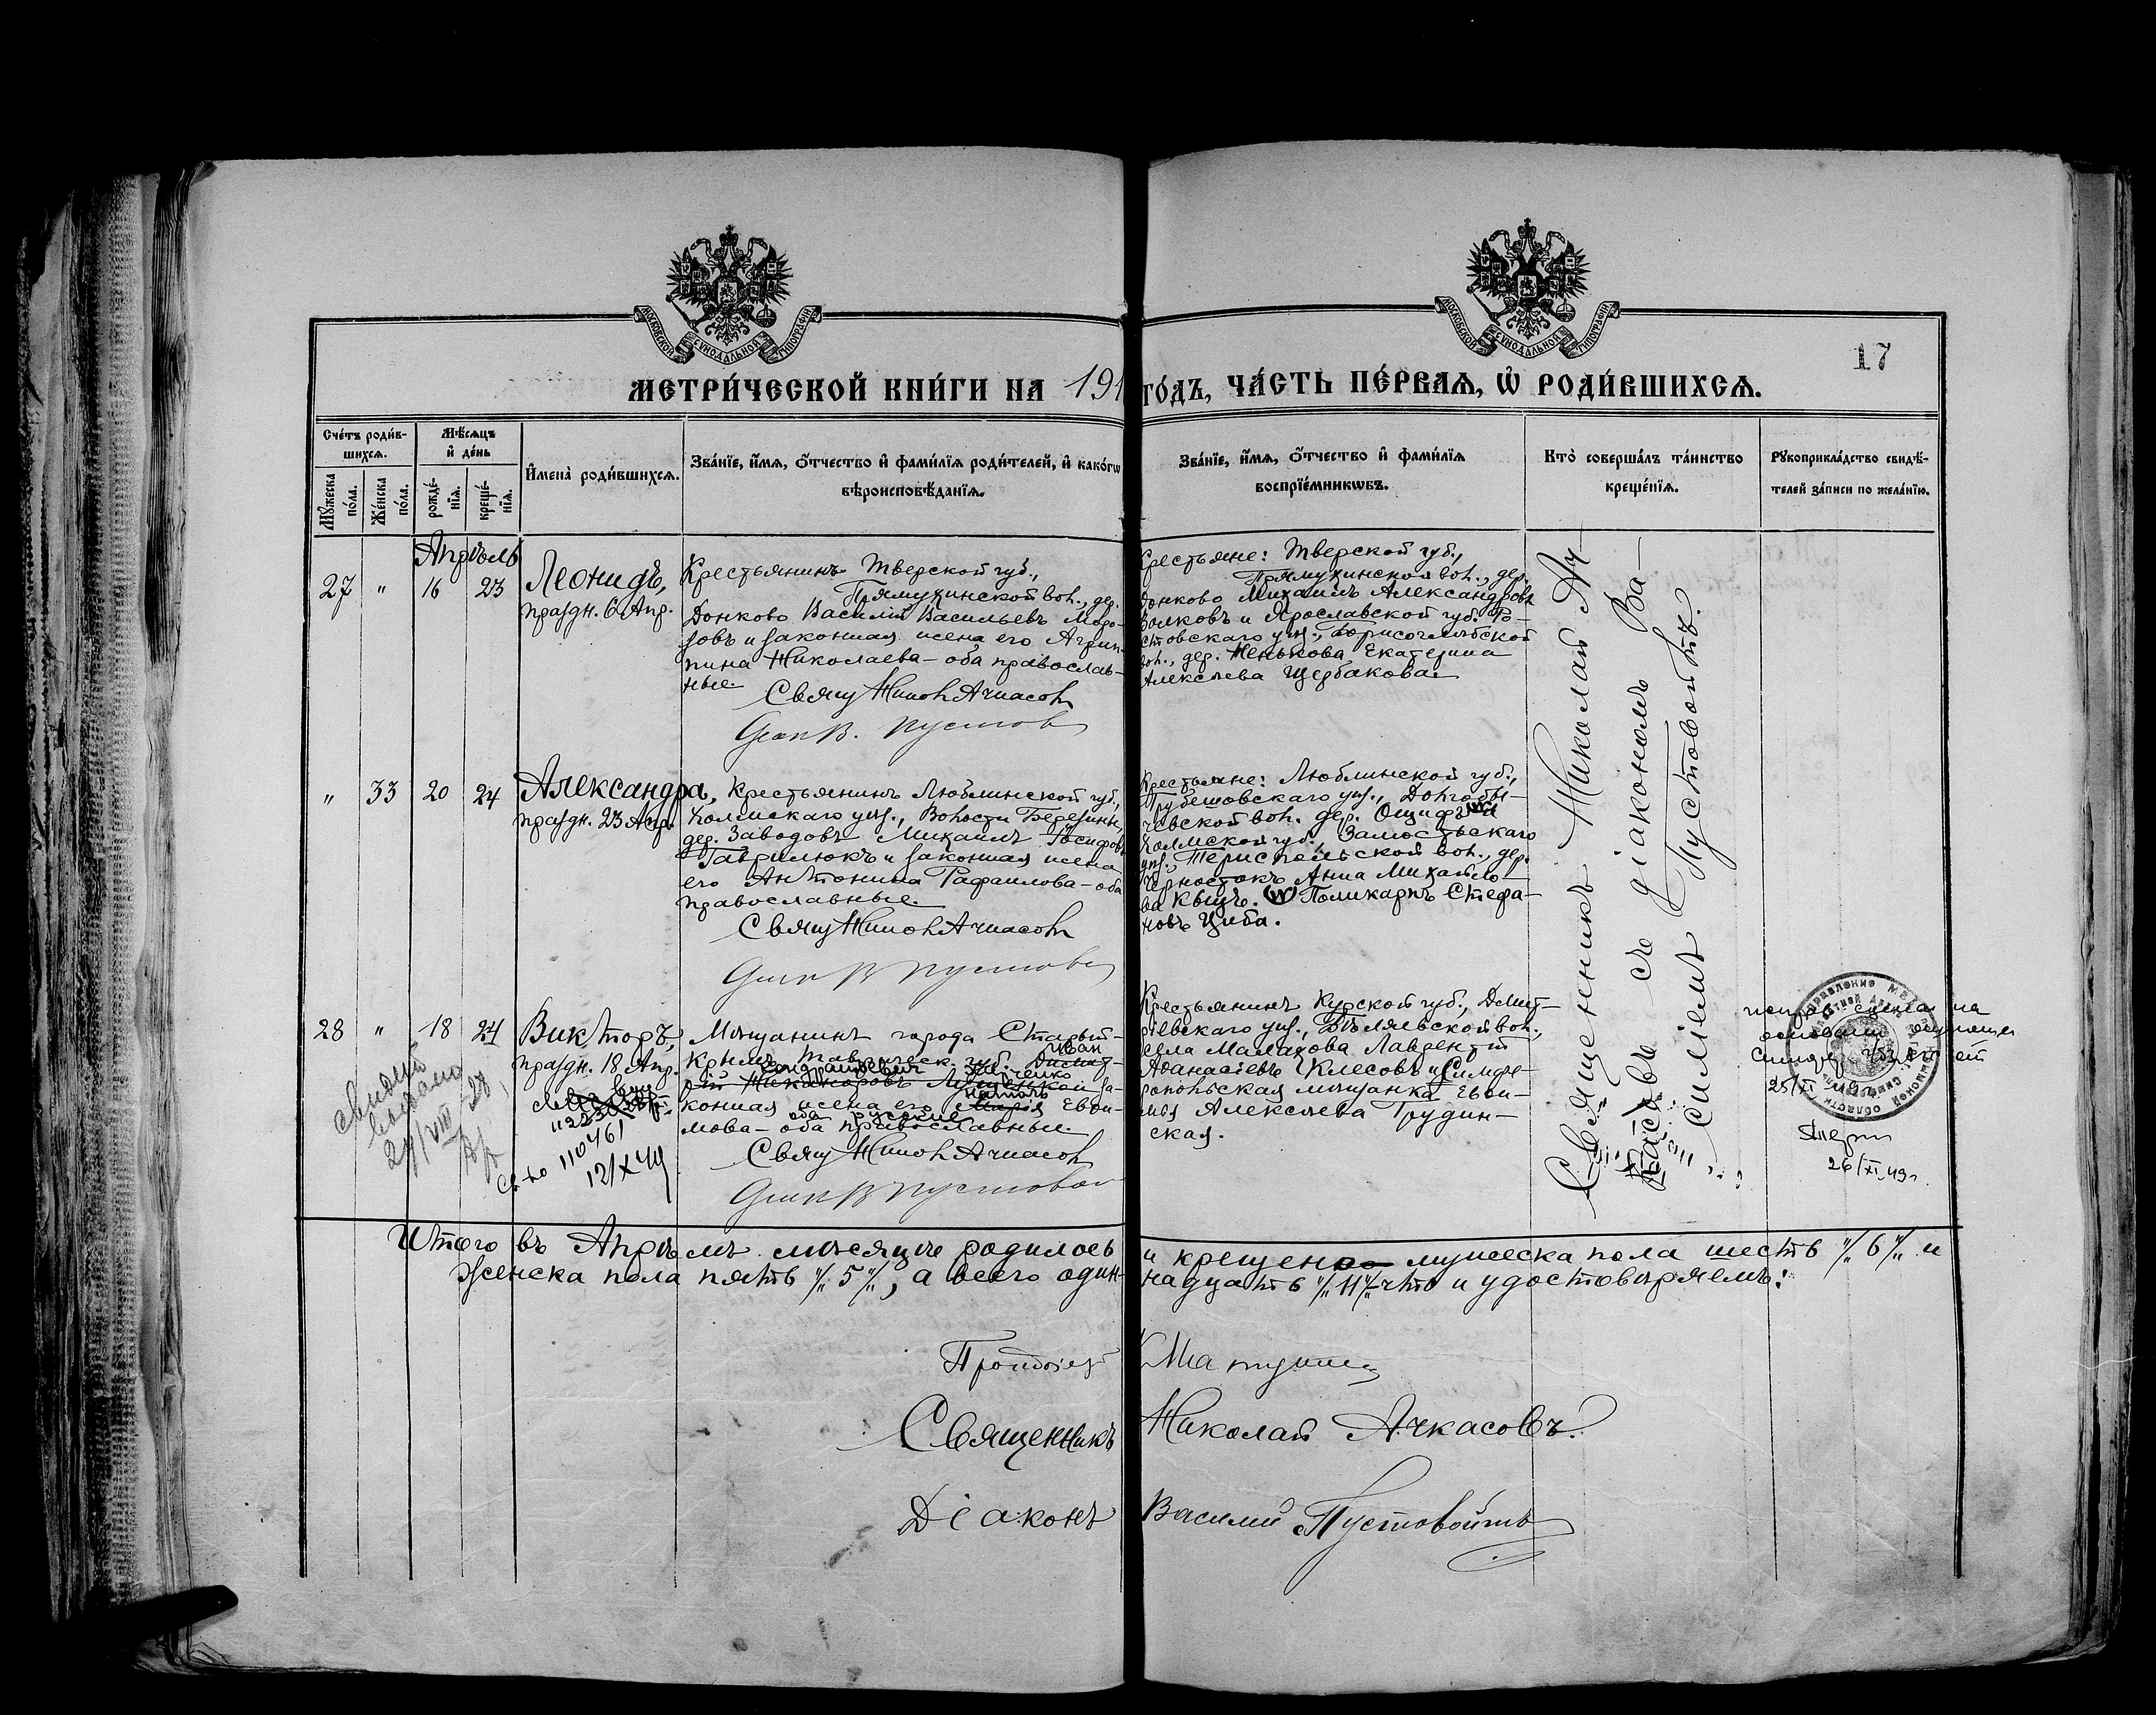 МОСКОВСКОЙ СѴНОДАЛЬНОЙ ТИПОГРАФІИ
МОСКОВСКОЙ СѴНОДАЛЬНОЙ ТИПОГРАФІИ
17
МЕТРИ́ЧЕСКОЙ КНИ́ГИ НА 191
ГО́ДЪ, ЧА́СТЬ ПЕ́РВАѦ, Ѡ҆ РОДИ́ВШИХСѦ.
Сче́тъ роди́в-
шихсѧ.
Мѣ́сѧцъ
и҆ де́нь
Мꙋ́жеска
по́ла.
Же́нска
по́ла.
рожде́-
нїѧ.
креще́-
нїѧ.
И҆мена̀ роди́вшихсѧ.
Зва́нїе, и҆́мѧ, ѻ҆́тчество и҆ фами́лїѧ роди́телей, и҆ како́гѡ
вѣроисповѣ́данїѧ.
Зва́нїе, и҆́мѧ, ѻ҆́тчество и҆ фами́лїѧ
воспрїе́мникѡвъ.
Кто̀ соверша́лъ та́инство
креще́нїѧ.
Рꙋкоприкла́дство свидѣ́-
телей за́писи по жела́нїю.
Апрѣль
27 " 16 23
Леонидъ,
праздн. 6 Апр.
Крестьянинъ Тверской губ.,
Прямухинской вол., дер.
Донково Василій Васильевъ Моро-
зовъ и законная жена его Агрип-
пина Николаева – оба православ-
ные.
Свящ Никол Ачкасов
В. Пустов
Крестьяне: Тверской губ.,
Прямухинской вол., дер.
Донково Михаилъ Александровъ
Волковъ и Ярославской губ. Ро-
стовскаго уѣз., Борисоглѣбской
вол., дер. Менькова Екатерина
Алексѣева Щербакова.
" 33 20 24
Александра,
праздн. 23 Апр.
Крестьянинъ Люблинской губ.,
Холмскаго уѣз., Волости Березины,
дер. Заводовъ Михаилъ Іосифовъ
Гаврилюкъ и законная жена
его Антонина Рафаилова – оба
православные.
Свящ Никол Ачкасов
В Пустов
Крестьяне: Люблинской губ.,
Грубешовскаго уѣз., Долгобы-
чевской вол. дер. и
Холмской губ., Замостьскаго
уѣз., Териспольской вол., дер.
Черностокъ Анна Михайло-
ва Поликарпъ Стефа-
новъ Циба.
28 " 18 24
Викторъ,
праздн. 18 Апр.
110461
12/X 49
24/VIII 28
Мѣщанинъ города Старый-
Крымъ Таврическ. губ.
Иван
Кондратьевич
за-
конная жена его Евѳи-
мова – оба православные.
оба русские
Свящ Никол Ачкасов
В Пустовой
Крестьянинъ Курской губ., Дмит-
ріевскаго уѣз., Бѣляевской вол.,
села Малахова Лаврентій
Аѳанасіевъ Клесовъ и Симфе-
ропольская мѣщанка Евѳи-
мія Алексѣева Грудин-
ская.
Священникъ Николай Ач-
касовъ съ діакономъ Ва-
силіемъ Пустовойтъ.
26/XI 49г.
Итого въ Апрѣлѣ мѣсяцѣ родилось
и крещено мужеска пола шесть "/. 6 "/. и
женска пола пять "/. 5 "/., а всего один-
надцать "/. 11 "/. что и удостовѣряемъ:
Священникъ Николай Ачкасовъ.
Діаконъ Василий Пустовойтъ